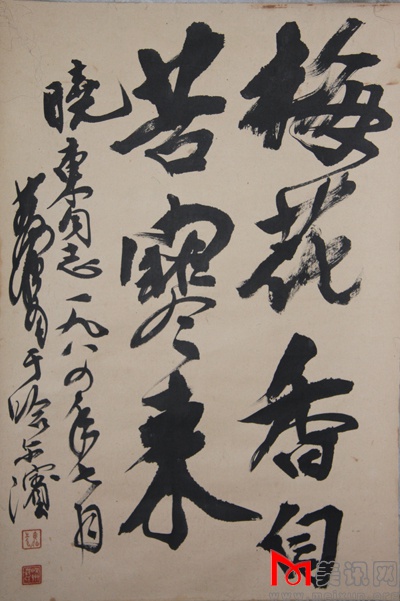 梅花香自
苦寒来
曉東同志一九八四年七月
于哈尔濱
美讯网